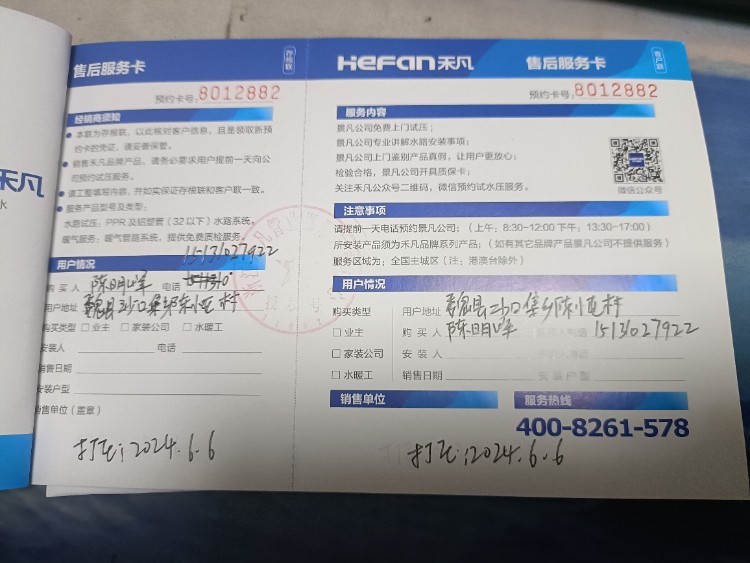 禾凡
水
售后服务卡
存根联
预约卡号:8012882
经销商须知
本联为存根联,以此核对客户信息,且是领取新预
约卡的凭证,请妥善保管。
销售禾凡品牌产品,请务必要求用户提前一天向公
司预约试压服务。
请工整填写内容,并如实保证存根联和客户联一致。
服务产品型号及类型:
水路试压:PPR及铝塑管(32以下)水路系统。
暖气服务:暖气管路系统,提供免费质检服务。
15131027922
用户情况
购买人 陈明峰 电话
用户地址 魏县沙口集乡陈小屯村
购买类型 □业主 □家装公司 □水暖工
安装人 电话
销售日期
安装户型
销售单位(盖章)
打压:2024.6.6
HeFan禾凡
售后服务卡
客户联
预约卡号:8012882
服务内容
景凡公司免费上门试压;
景凡公司专业讲解水路安装事项;
景凡公司上门鉴别产品真假,让用户更放心;
检验合格,景凡公司开具质保卡;
关注禾凡公众号二维码,微信预约试水压服务。
微信公众号
注意事项
请提前一天电话预约景凡公司;(上午:8:30-12:00 下午:13:30-17:00)
所安装产品须为禾凡品牌系列产品;(如有其它品牌产品景凡公司不提供服务)
服务区域为:全国主城区(注:港澳台除外)
用户情况
购买类型 用户地址 魏县沙口集乡陈小屯村
□业主 购买人 陈明峰 15131027922
□家装公司 安装人
□水暖工 销售日期 安装户型
销售单位
服务热线
400-8261-578
打压:2024.6.6